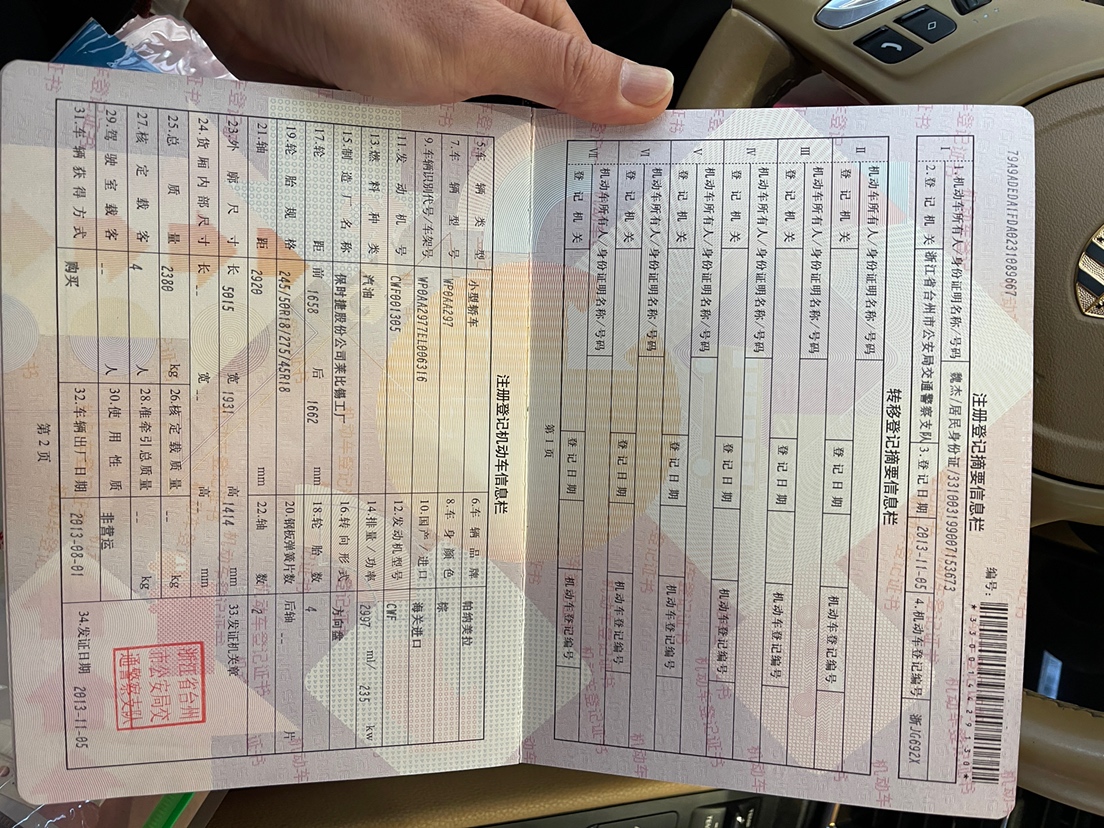 79A9ADEDA1FDA0231089667
注册登记摘要信息栏
编号:
*330014429130*
I 1.机动车所有人/身份证明名称/号码 魏杰/居民身份证/331003199007153673
2.登记机关 浙江省台州市公安局交通警察支队 3.登记日期 2013-11-05 4.机动车登记编号 浙JG692X
转移登记摘要信息栏
II 机动车所有人/身份证明名称/号码
登记机关 登记日期 机动车登记编号
III 机动车所有人/身份证明名称/号码
登记机关 登记日期 机动车登记编号
IV 机动车所有人/身份证明名称/号码
登记机关 登记日期 机动车登记编号
V 机动车所有人/身份证明名称/号码
登记机关 登记日期 机动车登记编号
VI 机动车所有人/身份证明名称/号码
登记机关 登记日期 机动车登记编号
VII 机动车所有人/身份证明名称/号码
登记机关 登记日期 机动车登记编号
第1页
注册登记机动车信息栏
5.车辆类型 小型轿车 6.车辆品牌 帕纳美拉
7.车辆型号 WP0AA297 8.车身颜色 棕
9.车辆识别代号/车架号 WP0AA2977EL006316 10.国产/进口 海关进口
11.发动机号 CWF001305 12.发动机型号 CWF
13.燃料种类 汽油 14.排量/功率 2997 ml/ 235 kw
15.制造厂名称 保时捷股份公司莱比锡工厂 16.转向形式 方向盘
17.轮距 前 1658 后 1662 mm 18.轮胎数 4
19.轮胎规格 245/50R18/275/45R18 20.钢板弹簧片数 后轴 -- 片
21.轴距 2920 mm 22.轴数 2
23.外廓尺寸 长 5015 宽 1931 高 1414 mm 33.发证机关章
24.货厢内部尺寸 长 -- 宽 -- 高 -- mm
浙江省台州
市公安局交
通警察支队
25.总质量 2380 kg 26.核定载质量 -- kg
27.核定载客 4 人 28.准牵引总质量 -- kg
29.驾驶室载客 -- 人 30.使用性质 非营运
31.车辆获得方式 购买 32.车辆出厂日期 2013-08-01 34.发证日期 2013-11-05
第2页